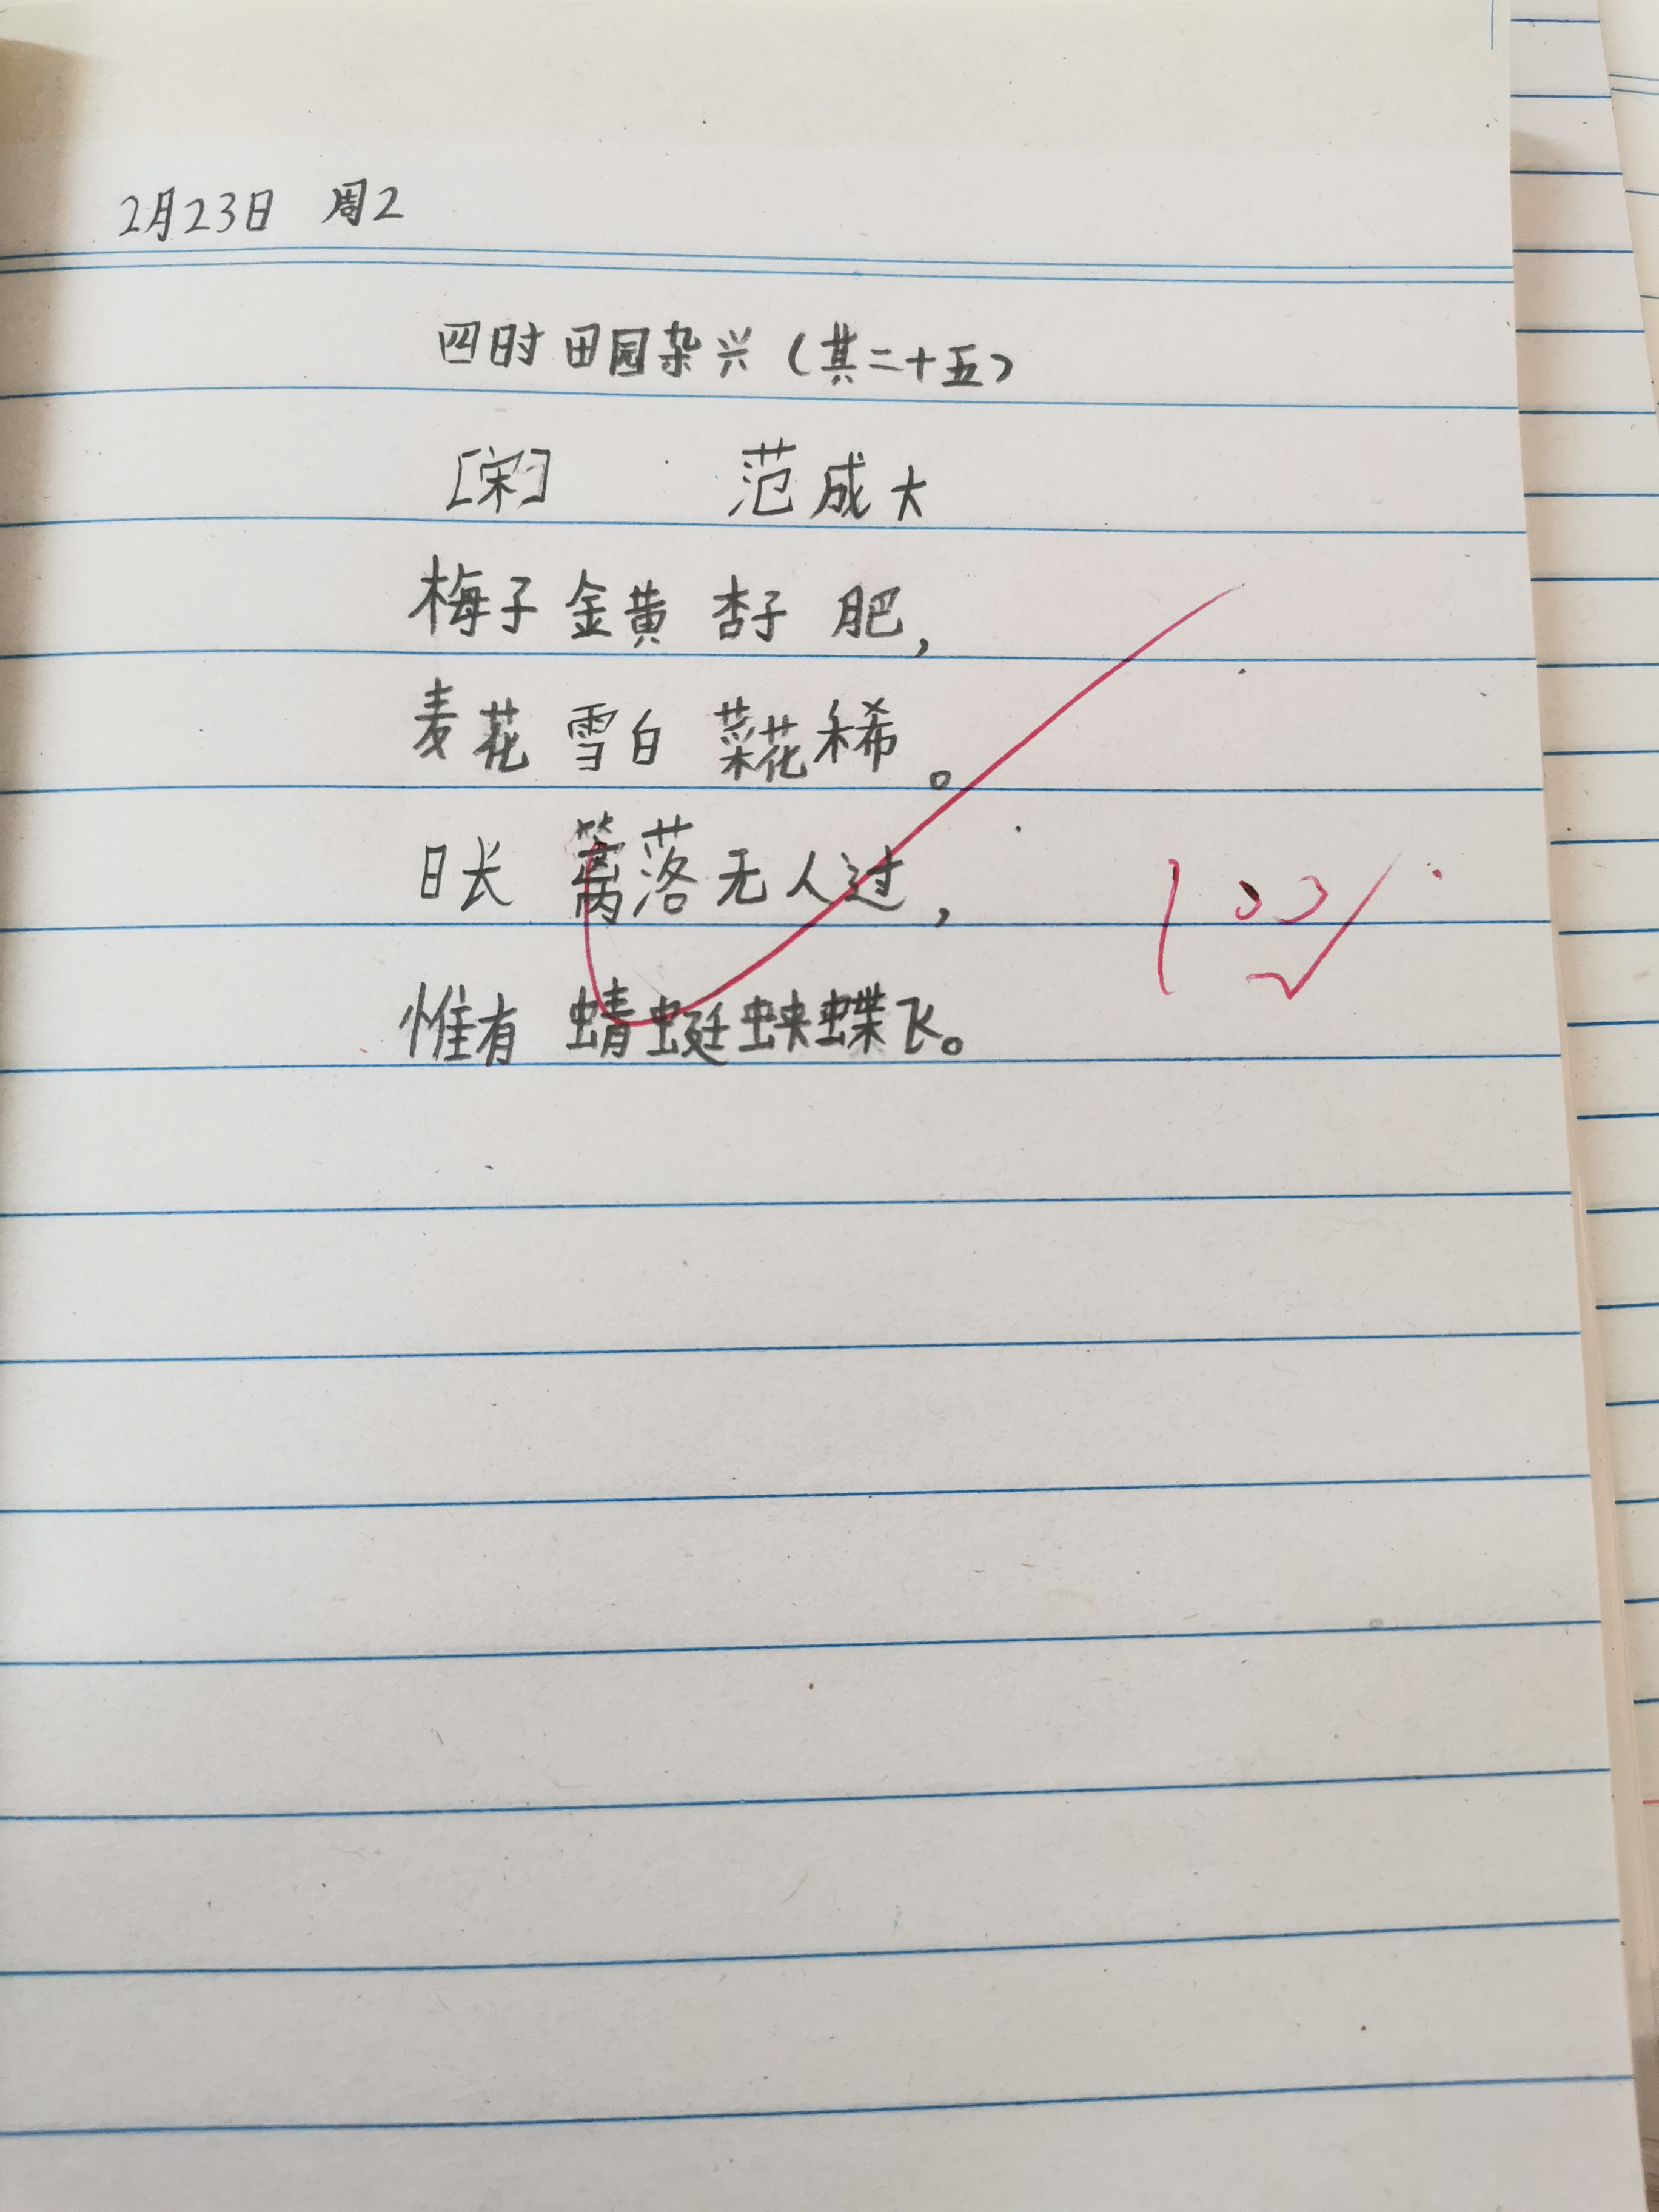 2月23日 周2
四时田园杂兴(其二十五)
[宋] 范成大
梅子金黄杏子肥,
麦花雪白菜花稀。
日长篱落无人过,
惟有蜻蜓蛱蝶飞。
100